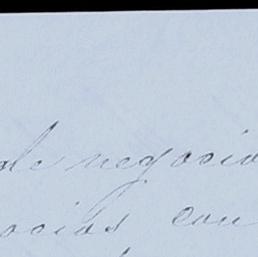 de negocio
ocios con